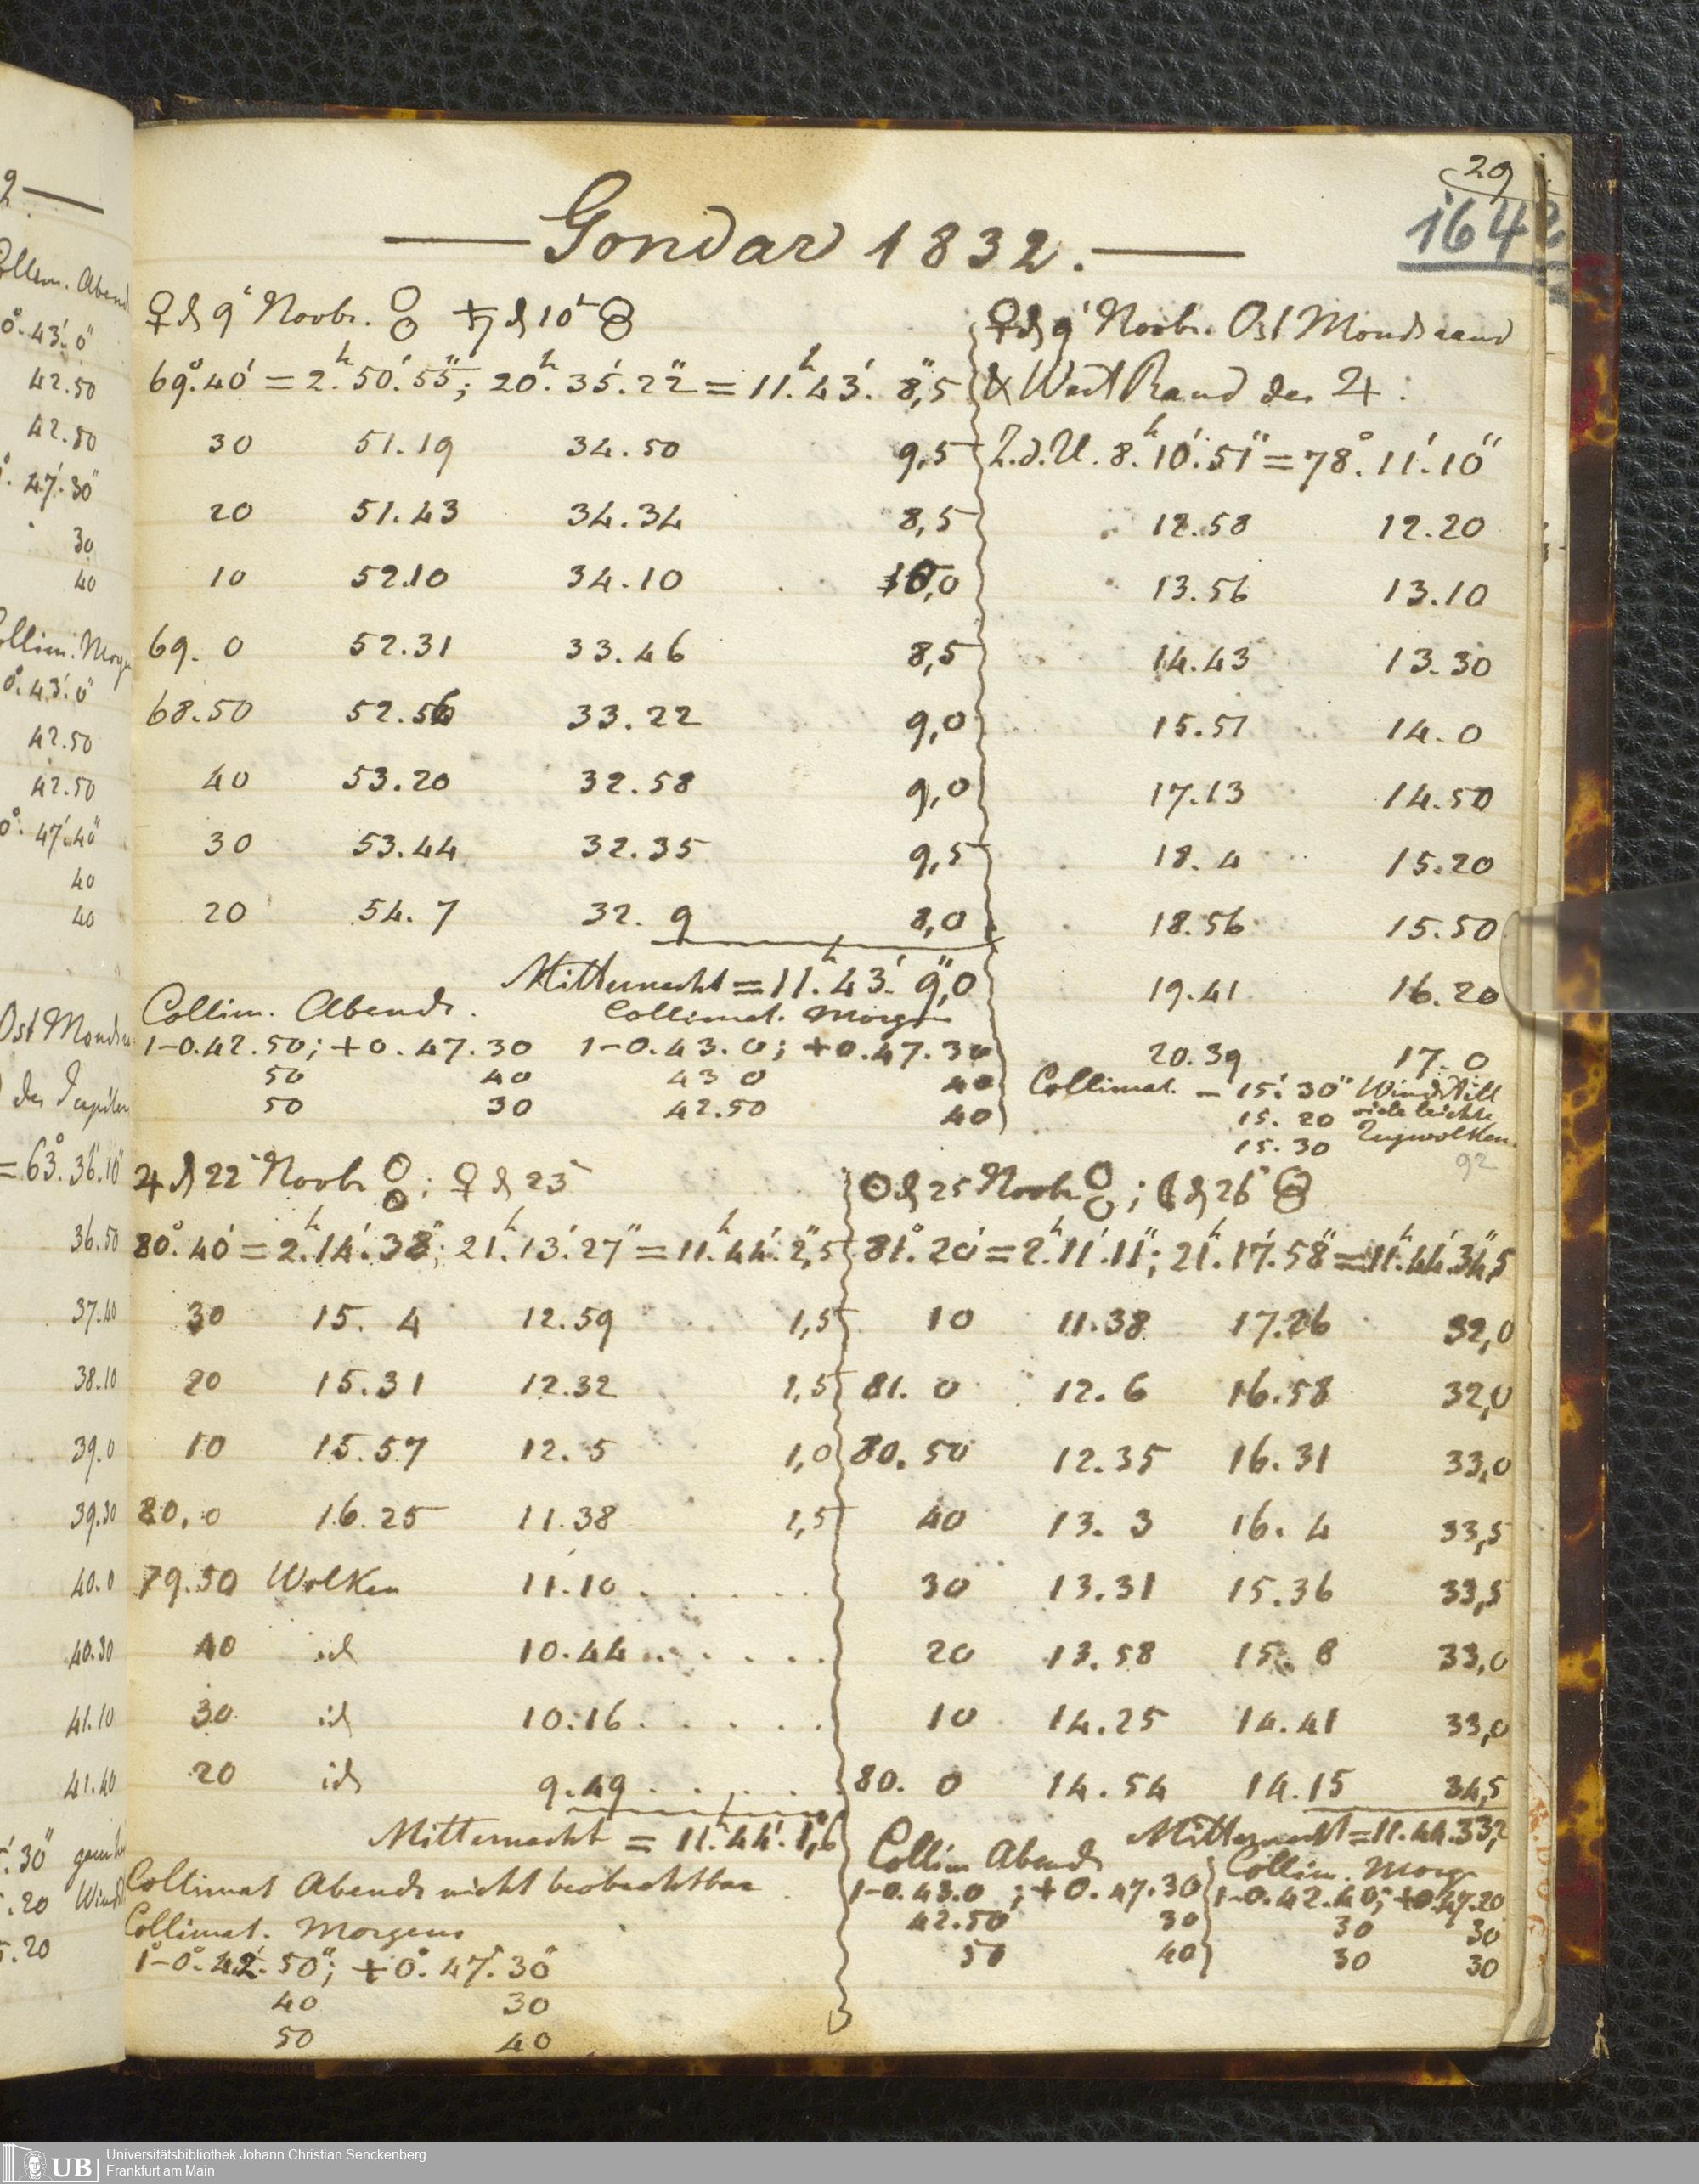 29
1642
Gondar 1832.
♀ d 9t Novbr. ♄ d 10t
69°.40' = 2h.50'.55"; 20h.35'.22" = 11h.43'. 8",5
30 51.19 34.50 9,5
20 51.43 34.34 8,5
10 52.10 34.10 10,0
69. 0 52.31 33.46 8,5
68.50 52.56 33.22 9,0
40 53.20 32.58 9,0
30 53.44 32.35 9,5
20 54. 7 32. 9 8,0
Mitternacht = 11h.43'. 9",0
Collim. Abends. Collimat. Morgen
1-0.42.50; +0.47.30 1-0.43.0; +0.47.30
50 40 43 0 40
50 30 42.50 40
♀ d 9t Novbr. Ost Mondsrand
& West Rand des ♃ :
Z.d.U. 8h.10'.51" = 78°.11'.10"
12.58 12.20
13.56 13.10
14.43 13.30
15.51 14.0
17.13 14.50
18. 4 15.20
18.56 15.50
19.41 16.20
20.39 17.0
Collimat. - 15'.30" Windstill
15.20 viele leichte
15.30 Zugwolken.
92
♃ d 22t Novbr ; ♀ d 23t
80°.40' = 2h.14'.38"; 21h.13'.27" = 11h.44'.2",5
30 15. 4 12.59 1,5
20 15.31 12.32 1,5
10 15.57 12. 5 1,0
80. 0 16.25 11.38 1,5
79.50 Wolken 11.10 . . . . .
40 id 10.44 . . . . . .
30 id 10.16 . . . . .
20 id 9.49 . . . . .
Mitternacht = 11h.44'.1",6
Collimat Abends nicht beobachtbar
Collimat. Morgens
1°-0°.42'.50"; +0°.47'.30"
40 30
50 40
☉ d 25 Novbr ; ☾ d 26t
81°.20' = 2h.11'.11"; 21h.17'.58" = 11h.44'.34",5
10 11.38 17.26 32,0
81. 0 12. 6 16.58 32,0
80.50 12.35 16.31 33,0
40 13. 3 16. 4 33,5
30 13.31 15.36 33,5
20 13.58 15. 8 33,0
10 14.25 14.41 33,0
80. 0 14.54 14.15 34,5
Mitternacht = 11.44.33,2
Collim Abends Collim. Morg
1-0.43.0 ; +0.47.30 1-0.42.40; +0.47.20
42.50 30 30 30
50 40 30 30
Collim. Abend
0°.43'.0"
42.50
42.50
47'.30"
30
40
Collim. Morgen
0°.43'.0"
42.50
42.50
0°.47'.40"
40
40
Ost Monds
des Jupiter
= 63°.36'.10"
36.50
37.40
38.10
39.0
39.30
40.0
40.30
41.10
41.40
UB
Universitätsbibliothek Johann Christian Senckenberg
Frankfurt am Main